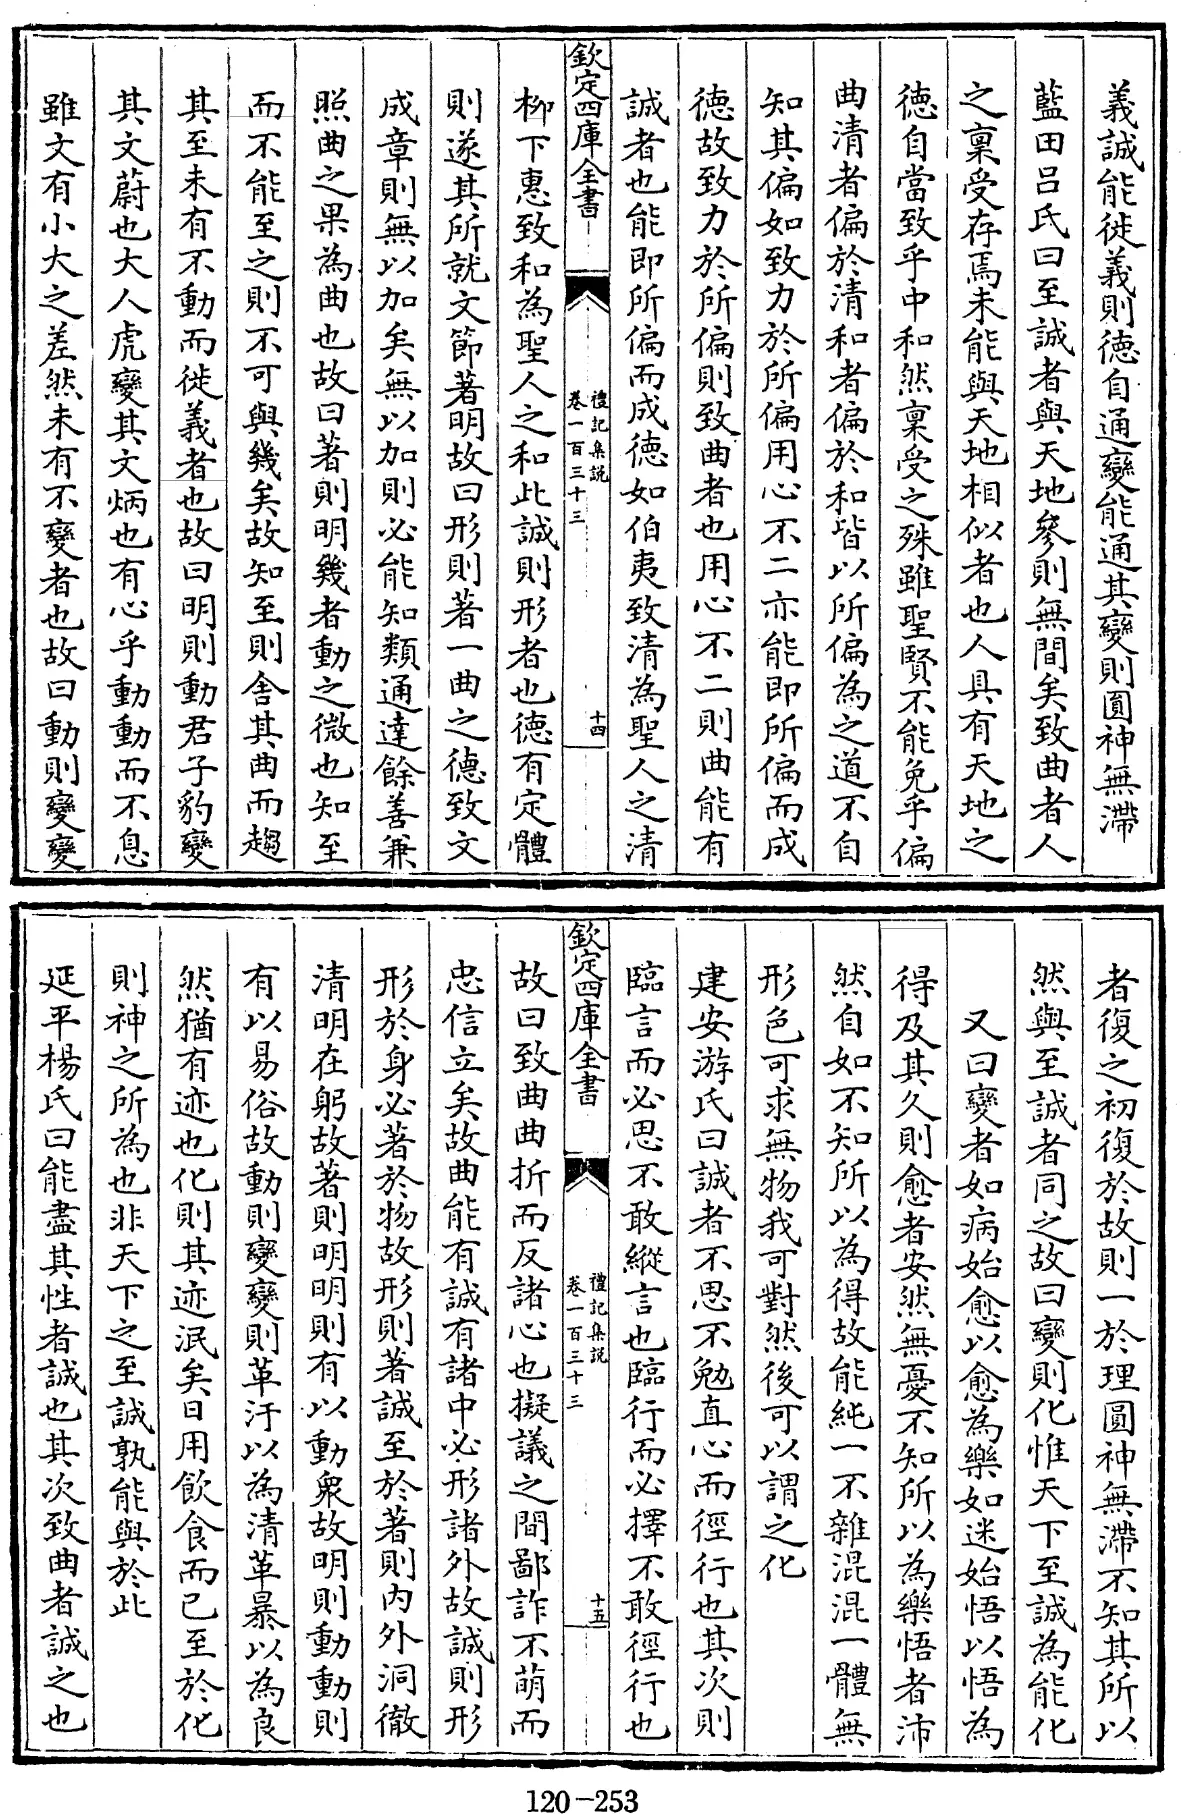 義誠能徙義則德自通變能通其變則圓神無滯
藍田呂氏曰至誠者與天地參則無間矣致曲者人
之稟受存焉未能與天地相似者也人具有天地之
德自當致乎中和然稟受之殊雖聖賢不能免乎偏
曲清者偏於清和者偏於和皆以所偏為之道不自
知其偏如致力於所偏用心不二亦能即所偏而成
德故致力於所偏則致曲者也用心不二則曲能有
誠者也能即所偏而成德如伯夷致清為聖人之清
欽定四庫全書
禮記集説
卷一百三十三
十四
柳下惠致和為聖人之和此誠則形者也德有定體
則遂其所就文節著明故曰形則著一曲之德致文
成章則無以加矣無以加則必能知類通達餘善兼
照曲之果為曲也故曰著則明幾者動之微也知至
而不能至之則不可與幾矣故知至則舍其曲而趨
其至未有不動而徙義者也故曰明則動君子豹變
其文蔚也大人虎變其文炳也有心乎動動而不息
雖文有小大之差然未有不變者也故曰動則變變
者復之初復於故則一於理圓神無滯不知其所以
然與至誠者同之故曰變則化惟天下至誠為能化
又曰變者如病始愈以愈為樂如迷始悟以悟為
得及其久則愈者安然無憂不知所以為樂悟者沛
然自如不知所以為得故能純一不雜混混一體無
形色可求無物我可對然後可以謂之化
建安游氏曰誠者不思不勉直心而徑行也其次則
臨言而必思不敢縱言也臨行而必擇不敢徑行也
欽定四庫全書
禮記集説
卷一百三十三
十五
故曰致曲曲折而反諸心也擬議之間鄙詐不萌而
忠信立矣故曲能有誠有諸中必形諸外故誠則形
形於身必著於物故形則著誠至於著則内外洞徹
清明在躬故著則明明則有以動衆故明則動動則
有以易俗故動則變變則革汙以為清革暴以為良
然猶有迹也化則其迹泯矣日用飲食而已至於化
則神之所為也非天下之至誠孰能與於此
延平楊氏曰能盡其性者誠也其次致曲者誠之也
120-253